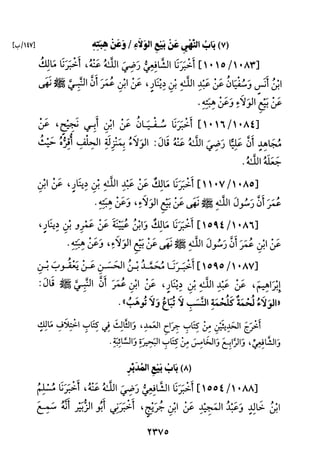 (٧) بَابُ النَّهْيِ عَنْ بَيْعِ الوَلَاءِ / وَعَنْ هِبَتِهِ [١٤٧/ب]
[١٠١٥/١٠٨٣] أَخْبَرَنَا الشَّافِعِيُّ رَضِيَ اللَّهُ عَنْهُ، أَخْبَرَنَا مَالِكُ
ابْنُ أَنَسٍ وَسُفْيَانُ عَنْ عَبْدِ اللَّهِ بْنِ دِينَارٍ، عَنْ ابْنِ عُمَرَ أَنَّ النَّبِيَّ ﷺ نَهَى
عَنْ بَيْعِ الوَلَاءِ وَعَنْ هِبَتِهِ.
[١٠١٦/١٠٨٤] أَخْبَرَنَا سُفْيَانُ عَنْ ابْنِ أَبِي نَجِيْحٍ، عَنْ
مُجَاهِدٍ أَنَّ عَلِيًّا رَضِيَ اللَّهُ عَنْهُ قَالَ: الوَلَاءُ بِمَنْزِلَةِ الحِلْفِ أُقِرُّهُ حَيْثُ
جَعَلَهُ اللَّهُ.
[١١٠٧/١٠٨٥] أَخْبَرَنَا مَالِكٌ عَنْ عَبْدِ اللَّهِ بْنِ دِينَارٍ، عَنْ ابْنِ
عُمَرَ أَنَّ رَسُولَ اللَّهِ ﷺ نَهَى عَنْ بَيْعِ الوَلَاءِ، وَعَنْ هِبَتِهِ.
[١٥٩٤/١٠٨٦] أَخْبَرَنَا مَالِكٌ وَابْنُ عُيَيْنَةَ عَنْ عَمْرِو بْنِ دِينَارٍ،
عَنْ ابْنِ عُمَرَ أَنَّ رَسُولَ اللَّهِ ﷺ نَهَى عَنْ بَيْعِ الوَلَاءِ، وَعَنْ هِبَتِهِ.
[١٥٩٥/١٠٨٧] أَخْبَرَنَا مُحَمَّدُ بْنُ الحَسَنِ عَنْ يَعْقُوبَ بْنِ
إِبْرَاهِيمَ، عَنْ عَبْدِ اللَّهِ بْنِ دِينَارٍ، عَنْ ابْنِ عُمَرَ أَنَّ النَّبِيَّ ﷺ قَالَ:
«الوَلَاءُ لُحْمَةٌ كَلُحْمَةِ النَّسَبِ لَا تُبَاعُ وَلَا تُوهَبُ».
أَخْرَجَ الحَدِيثَيْنِ مِنْ كِتَابِ جِرَاحِ العَمْدِ، وَالثَّالِثَ فِي كِتَابِ اخْتِلَافِ مَالِكٍ
وَالشَّافِعِيِّ، وَالرَّابِعَ وَالخَامِسَ مِنْ كِتَابِ البَحِيرَةِ وَالسَّائِبَةِ.
(٨) بَابُ بَيْعِ المُدَبَّرِ
[١٥٥٤/١٠٨٨] أَخْبَرَنَا الشَّافِعِيُّ رَضِيَ اللَّهُ عَنْهُ، أَخْبَرَنَا مُسْلِمُ
ابْنُ خَالِدٍ وَعَبْدُ المَجِيْدِ عَنْ ابْنِ جُرَيْجٍ، أَخْبَرَنِي أَبُو الزُّبَيْرِ أَنَّهُ سَمِعَ
٢٣٧٥